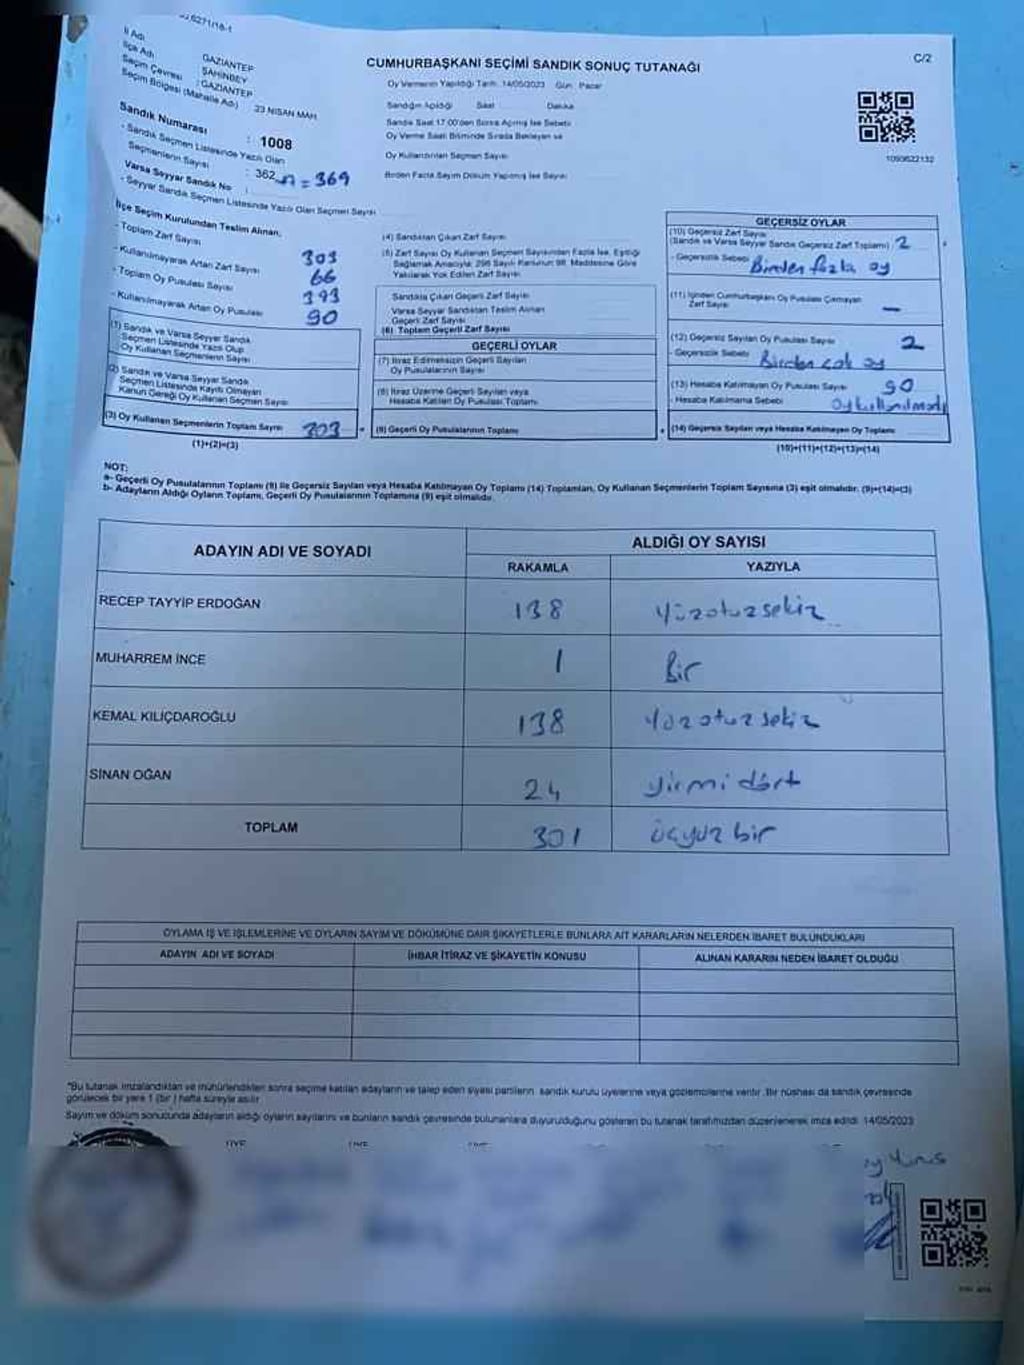 6271/16-1
İl Adı
GAZİANTEP
İlçe Adı
ŞAHİNBEY
Seçim Çevresi : GAZİANTEP
Seçim Bölgesi (Mahalle Adı) 23 NİSAN MAH.
Sandık Numarası : 1008
- Sandık Seçmen Listesinde Yazılı Olan
Seçmenlerin Sayısı : 362 = 369
Varsa Seyyar Sandık No :
- Seyyar Sandık Seçmen Listesinde Yazılı Olan Seçmen Sayısı
CUMHURBAŞKANI SEÇİMİ SANDIK SONUÇ TUTANAĞI
C/2
Oy Vermenin Yapıldığı Tarih: 14/05/2023 Gün: Pazar
Sandığın Açıldığı Saat Dakika
Sandık Saat 17:00'den Sonra Açılmış İse Sebebi
Oy Verme Saati Bitiminde Sırada Bekleyen ve
Oy Kullandırılan Seçmen Sayısı
Birden Fazla Sayım Döküm Yapılmış İse Sayısı
1090622132
İlçe Seçim Kurulundan Teslim Alınan;
- Toplam Zarf Sayısı 303
- Kullanılmayarak Artan Zarf Sayısı 66
- Toplam Oy Pusulası Sayısı 393
- Kullanılmayarak Artan Oy Pusulası 90
(1) Sandık ve Varsa Seyyar Sandık
Seçmen Listesinde Yazılı Olup
Oy Kullanan Seçmenlerin Sayısı
(2) Sandık ve Varsa Seyyar Sandık
Seçmen Listesinde Kayıtlı Olmayan
Kanun Gereği Oy Kullanan Seçmen Sayısı
(3) Oy Kullanan Seçmenlerin Toplam Sayısı 303
(1)+(2)=(3)
(4) Sandıktan Çıkan Zarf Sayısı
(5) Zarf Sayısı Oy Kullanan Seçmen Sayısından Fazla İse, Eşitliği
Sağlamak Amacıyla; 298 Sayılı Kanunun 98. Maddesine Göre
Yakılarak Yok Edilen Zarf Sayısı
Sandıkta Çıkan Geçerli Zarf Sayısı
Varsa Seyyar Sandıktan Teslim Alınan
Geçerli Zarf Sayısı
(6) Toplam Geçerli Zarf Sayısı
GEÇERLİ OYLAR
(7) İtiraz Edilmeksizin Geçerli Sayılan
Oy Pusulalarının Sayısı
(8) İtiraz Üzerine Geçerli Sayılan veya
Hesaba Katılan Oy Pusulası Toplamı
(9) Geçerli Oy Pusulalarının Toplamı
GEÇERSİZ OYLAR
(10) Geçersiz Zarf Sayısı
(Sandık ve Varsa Seyyar Sandık Geçersiz Zarf Toplamı) 2
- Geçersizlik Sebebi Birden fazla oy
(11) İçinden Cumhurbaşkanı Oy Pusulası Çıkmayan
Zarf Sayısı —
(12) Geçersiz Sayılan Oy Pusulası Sayısı 2
- Geçersizlik Sebebi Birden çok oy
(13) Hesaba Katılmayan Oy Pusulası Sayısı 90
- Hesaba Katılmama Sebebi Oy kullanılmadı
(14) Geçersiz Sayılan veya Hesaba Katılmayan Oy Toplamı
(10)+(11)+(12)+(13)=(14)
NOT:
a- Geçerli Oy Pusulalarının Toplamı (9) ile Geçersiz Sayılan veya Hesaba Katılmayan Oy Toplamı (14) Toplamları, Oy Kullanan Seçmenlerin Toplam Sayısına (3) eşit olmalıdır. (9)+(14)=(3)
b- Adayların Aldığı Oyların Toplamı, Geçerli Oy Pusulalarının Toplamına (9) eşit olmalıdır.
ADAYIN ADI VE SOYADI ALDIĞI OY SAYISI
RAKAMLA YAZIYLA
RECEP TAYYİP ERDOĞAN 138 Yüzotuzsekiz
MUHARREM İNCE 1 Bir
KEMAL KILIÇDAROĞLU 138 Yüzotuzsekiz
SİNAN OĞAN 24 yirmi dört
TOPLAM 301 üçyüz bir
OYLAMA İŞ VE İŞLEMLERİNE VE OYLARIN SAYIM VE DÖKÜMÜNE DAİR ŞİKAYETLERLE BUNLARA AİT KARARLARIN NELERDEN İBARET BULUNDUKLARI
ADAYIN ADI VE SOYADI İHBAR İTİRAZ VE ŞİKAYETİN KONUSU ALINAN KARARIN NEDEN İBARET OLDUĞU
*Bu tutanak imzalandıktan ve mühürlendikten sonra seçime katılan adayların ve talep eden siyasi partilerin sandık kurulu üyelerine veya gözlemcilerine verilir. Bir nüshası da sandık çevresinde
görülecek bir yere 1 (bir) hafta süreyle asılır.
Sayım ve döküm sonucunda adayların aldığı oyların sayılarını ve bunların sandık çevresinde bulunanlara duyurulduğunu gösteren bu tutanak tarafımızdan düzenlenerek imza edildi. 14/05/2023